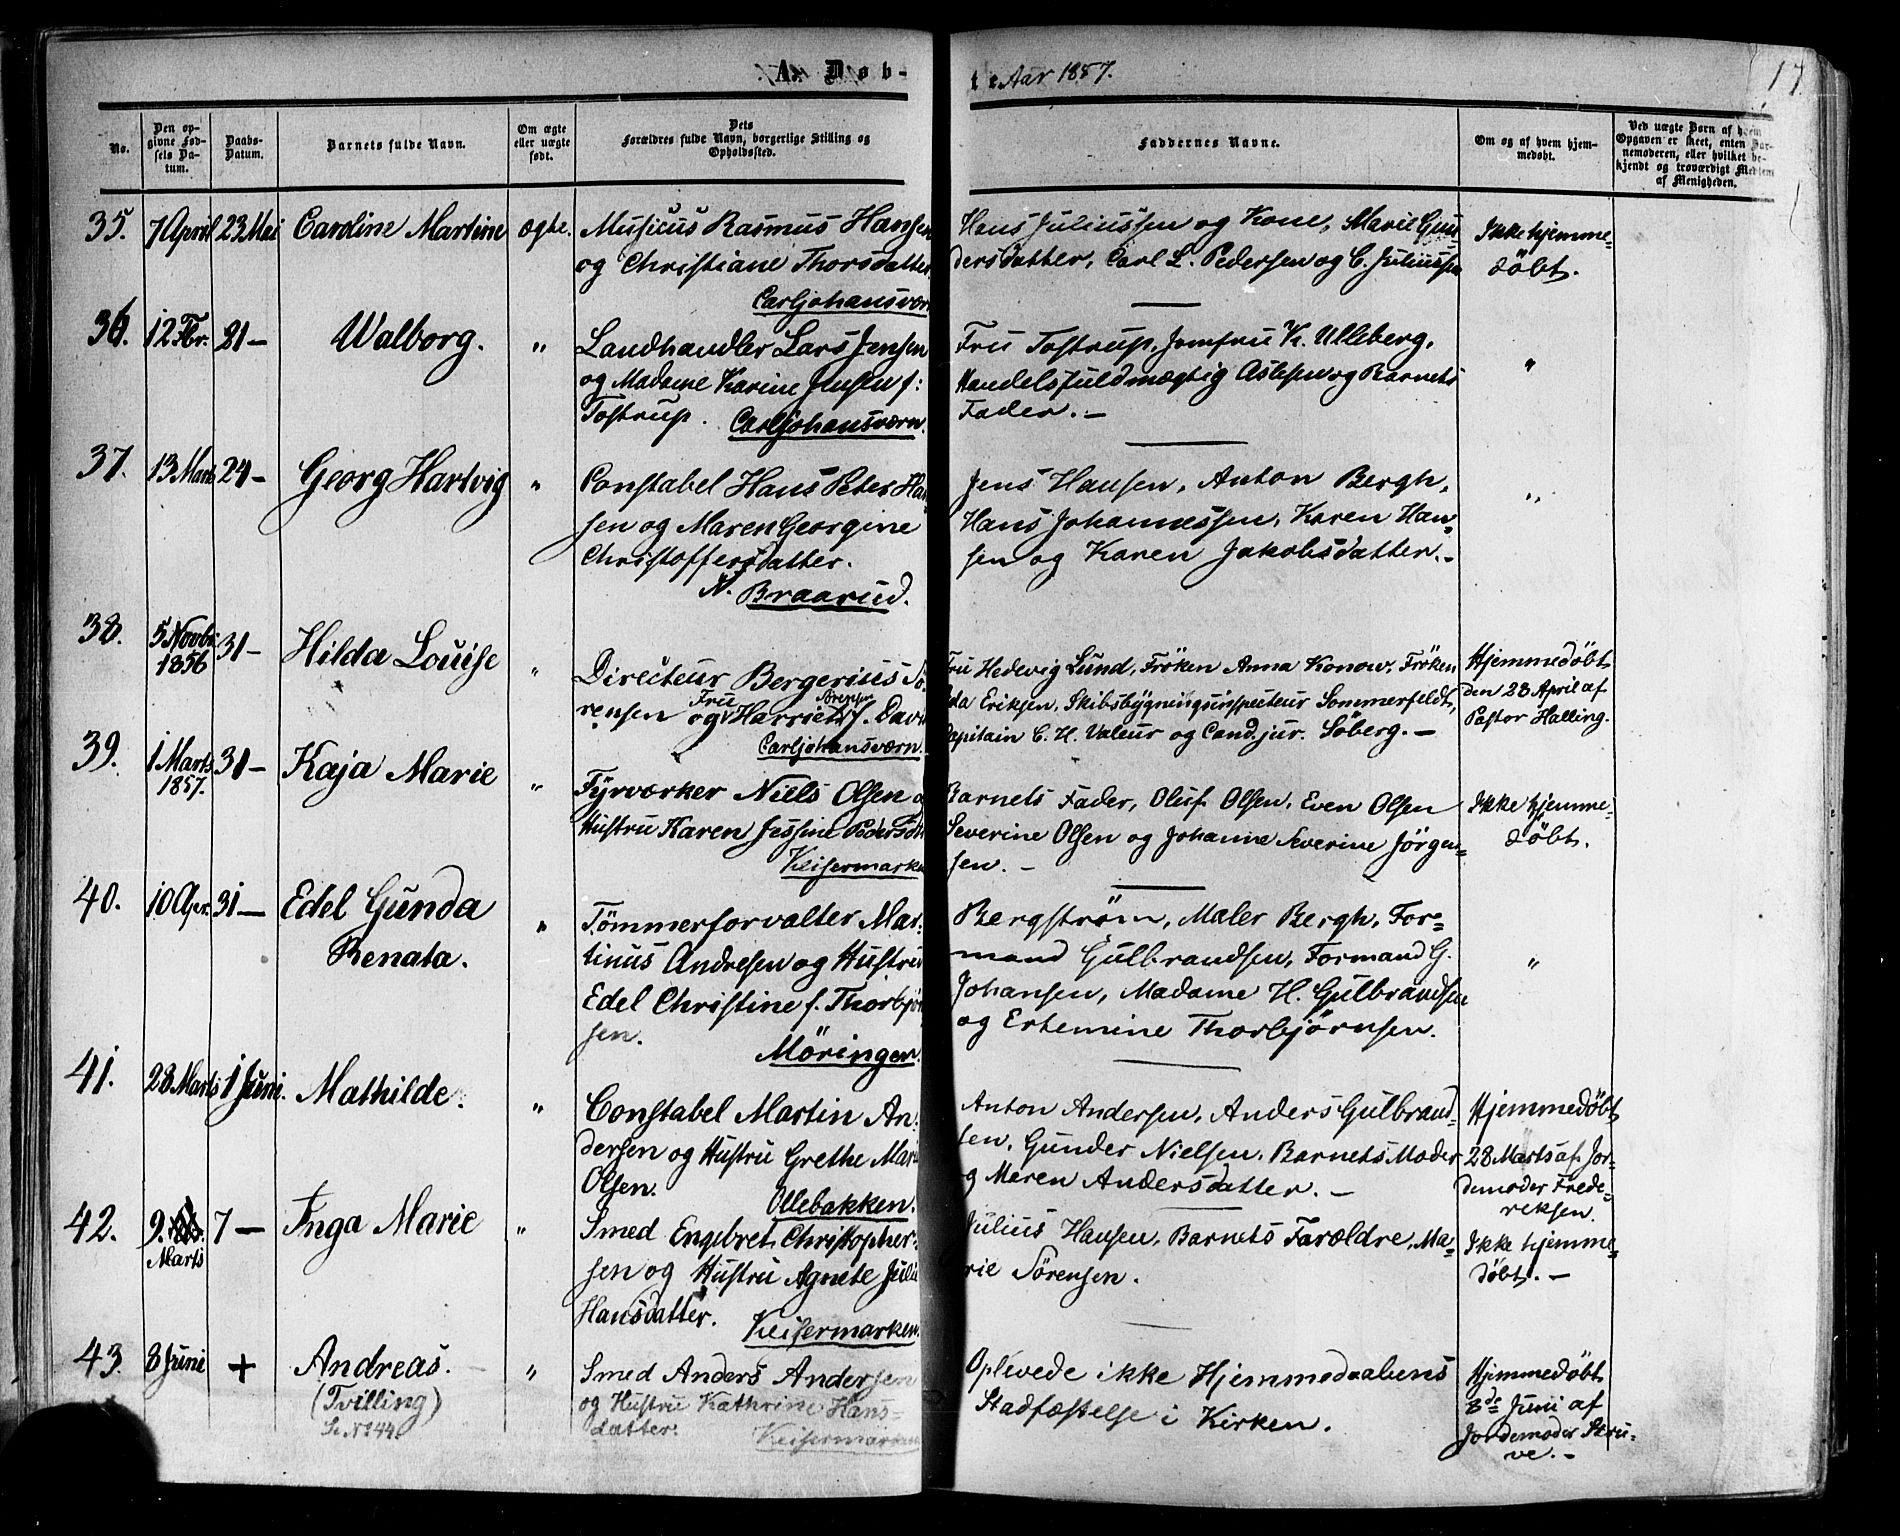 A. Døb-
te Aar 1857.
17
No.
Den opgivne Fødsels Datum.
Daabs-Datum.
Barnets fulde Navn.
Om ægte eller uægte født.
Dets Forældres fulde Navn, borgerlige Stilling og Opholdsted.
Faddernes Navne.
Om og af hvem hjemmedøbt.
Ved uægte Børn af hvem Opgaven er skeet, enten Barnemoderen, eller hvilket bekjendt og troværdigt Medlem af Menigheden.
35. 7 April 23 Mai Caroline Martine ægte.
Musicus Rasmus Hansen
og Christiane Thorsdatter
Carljohansværn
Hans Juliussen og Kone, Marie Gun-
dersdatter, Carl L. Pedersen og C. Juliussen
Ikke hjemme-
døbt.
36. 12 Fbr. 21 — Walborg. "
Landhandler Lars Jensen
og Madame Karine Jensen f:
Tostrup. Carljohansværn.
Fru Tostrup, Jomfru K. Ulleberg,
Handelsfuldmægtig Aslesen og Barnets
Fader. —
"
37. 13 Marts 24 — Georg Hartvig "
Constabel Hans Peter Han-
sen og Maren Georgine
Christoffersdatter.
N. Braarud.
Jens Hansen, Anton Bergh,
Hans Johannessen, Karen Han-
sen og Karen Jakobsdatter. -
"
38. 5 Novbr. 1856 31 — Hilda Louise "
Directeur Bergerius Sö-
rensen og Fru Harriet Sörensen f. Davi
Carljohansværn.
Fru Hedevig Lund, Fröken Anna Konow, Fröken
Ida Eriksen, Skibsbygningsinspecteur Sommerfeldt,
Capitain C. H. Valeur og Cand. jur. Söberg. —
Hjemmedöbt
den 23 April af
Pastor Halling.
39. 1 Marts 1857. 31 — Kaja Marie "
Fyrværker Niels Olsen og
Hustru Karen Jessine Pedersdt
Keisermarken
Barnets Fader, Oluf Olsen, Even Olsen
Severine Olsen og Johanne Severine Jörgen-
sen. —
Ikke hjemme-
döbt.
40. 10 Apr. 31 — Edel Gunda
Renata. "
Tömmerforvalter Mar-
tinus Andresen og Hustru
Edel Christine f. Thorbjörn
sen. Möringen.
Bergström, Maler Bergh, For-
mand Gulbrandsen, Formand G.
Johansen, Madame H. Gulbrandsen
og Ertemine Thorbjörnsen.
"
41. 28 Marts 1 Juni. Mathilde. "
Constabel Martin An-
dersen og Hustru Grethe Marie
Olsen. Ollebakken.
Anton Andersen, Anders Gulbrand-
sen, Gunder Nielsen, Barnets Moder
og Maren Andersdatter. —
Hjemmedöbt
28 Marts af Jor-
demoder Frede-
riksen.
42. 9. Marts 7 — Inga Marie "
Smed Engebret Christopher-
sen og Hustru Agnete Julie
Hansdatter. Keisermarken.
Julius Hansen, Barnets Forældre, Ma-
rie Sörensen.
Ikke hjemme-
döbt. —
43. 8 Juni + Andreas.
(Tvilling)
Se No 44. "
Smed Anders Andersen
og Hustru Kathrine Hans-
datter. Keisermarken
Oplevede ikke Hjemmedaabens
Stadfæstelse i Kirken.
Hjemmedöbt
8de Juni af
Jordemoder Skru-
ve. —